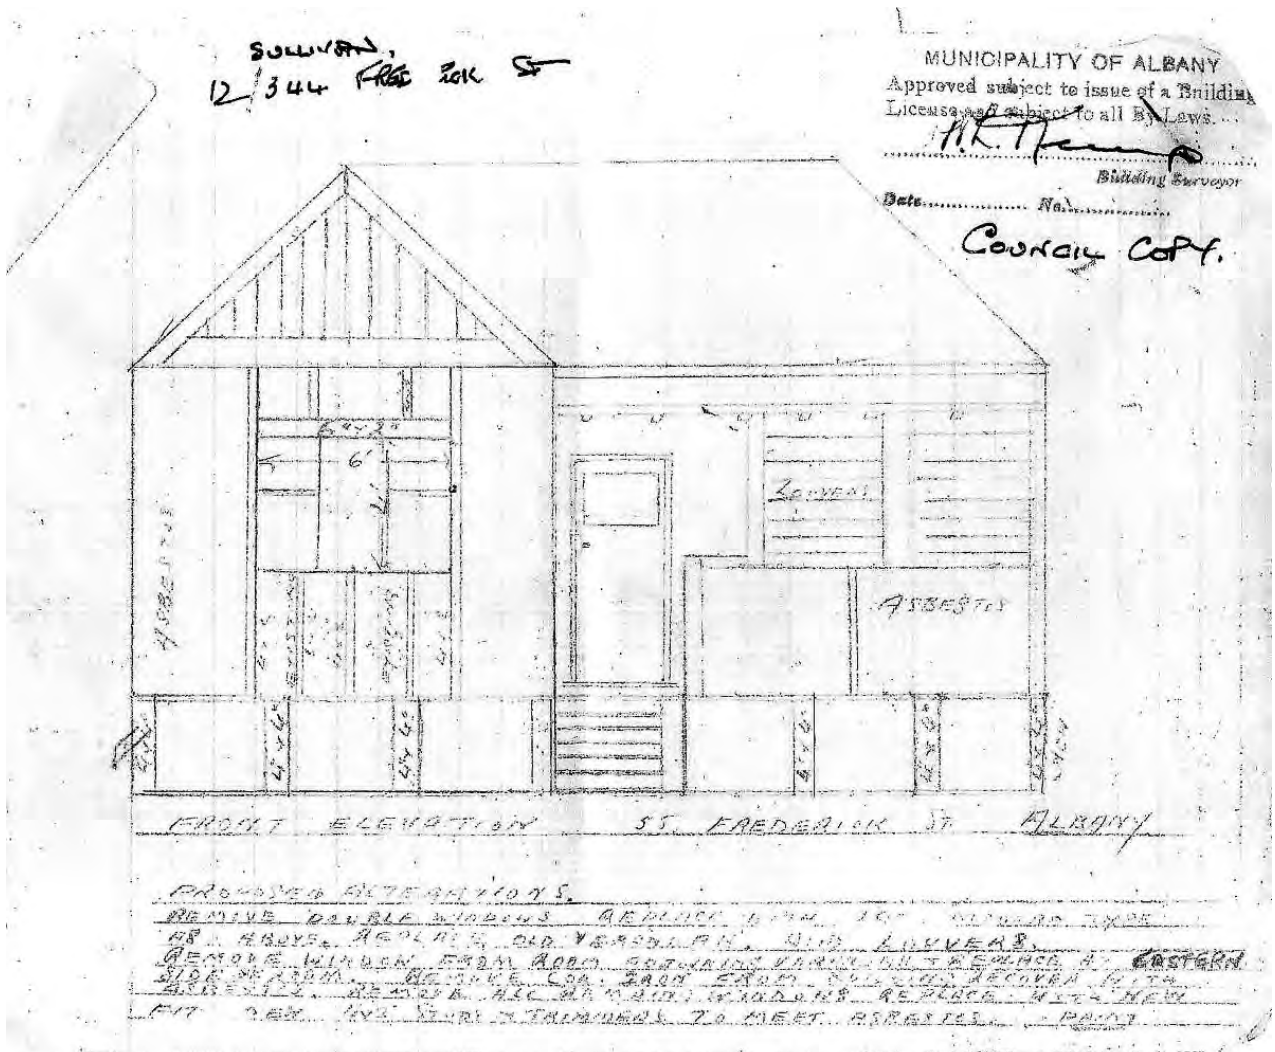 SULLIVAN.
12/344 FRED ICK ST
MUNICIPALITY OF ALBANY
Approved subject to issue of a Building
License and subject to all By-Laws.
Building Surveyor
Date No.
COUNCIL COPY.
6" x 2"
6'
LOUVERS
ASBESTOS
ASBESTOS
EXISTING
4 x 4"
4" x 4"
4 x 4"
4 x 4"
4" x 4"
4 x 4"
FRONT ELEVATION 55. FREDERICK ST. ALBANY
PROPOSED ALTERATIONS.
REMOVE DOUBLE WINDOWS REPLACE WITH TYPE
AS ABOVE. REPLACE OLD VERANDAH. LOUVERS.
REMOVE WINDOW FROM ROOM REPLACE AT EASTERN
SIDE OF ROOM. REMOVE COR. IRON FROM BUILDING RECOVER WITH
ASBESTOS. REMOVE ALL REMAINING WINDOWS REPLACE WITH NEW
TRIMMERS TO MEET ASBESTOS. PAINT